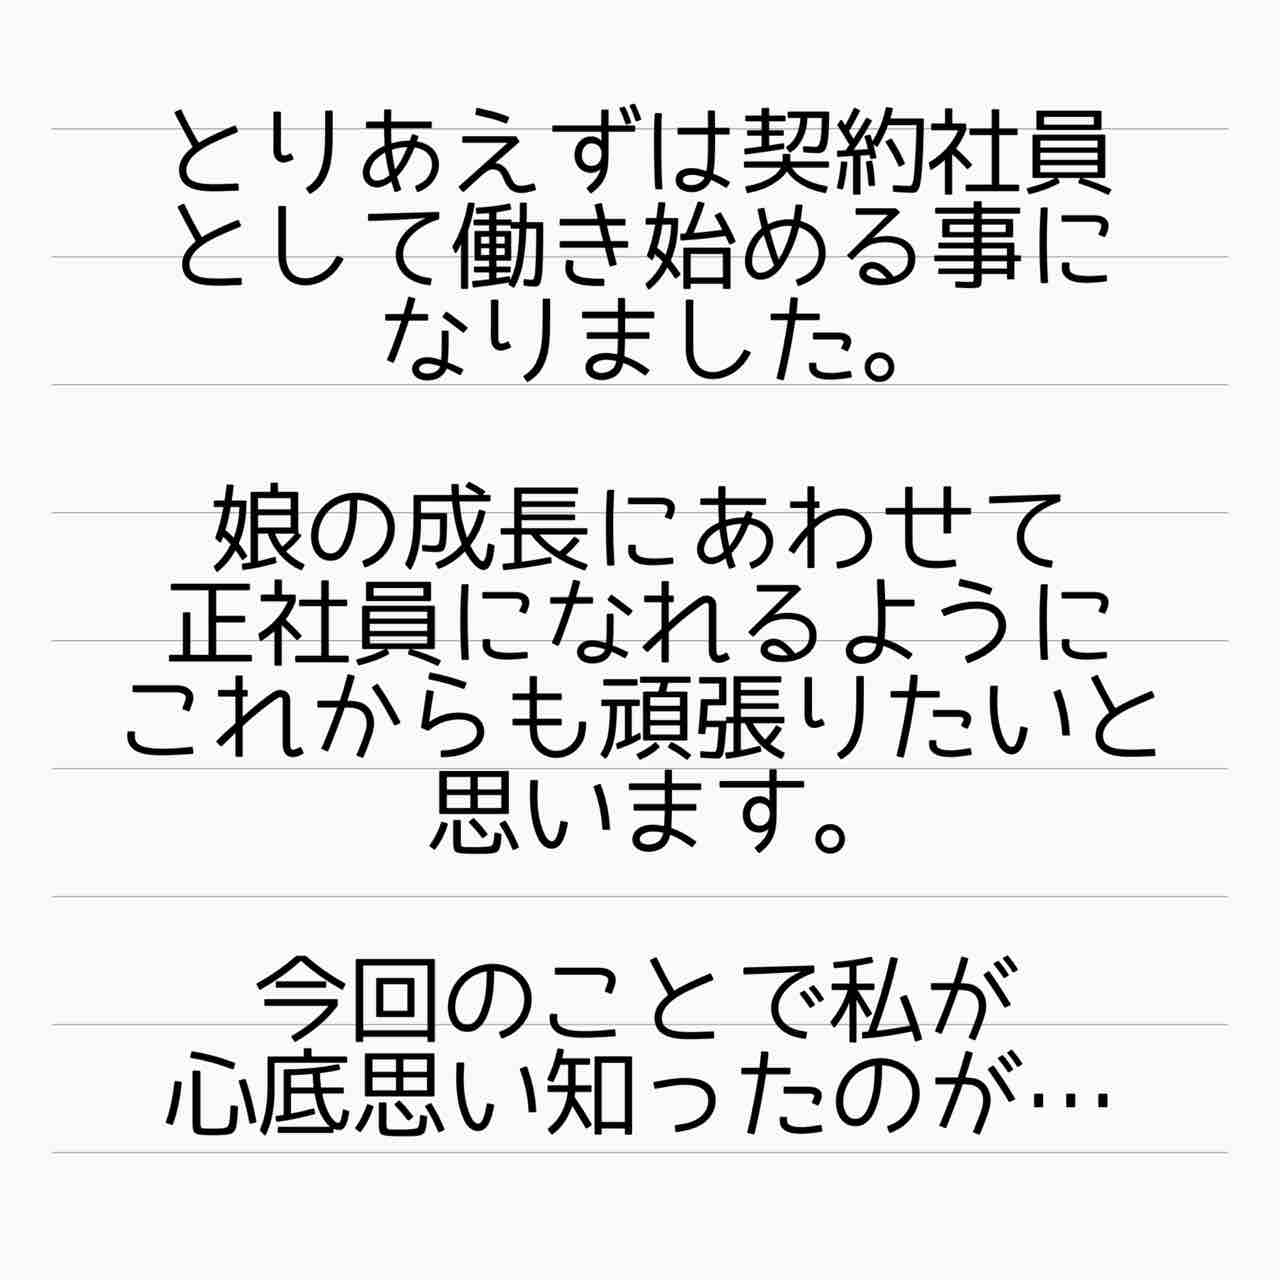 とりあえずは契約社員
として働き始める事に
なりました。
娘の成長にあわせて
正社員になれるように
これからも頑張りたいと
思います。
今回のことで私が
心底思い知ったのが…